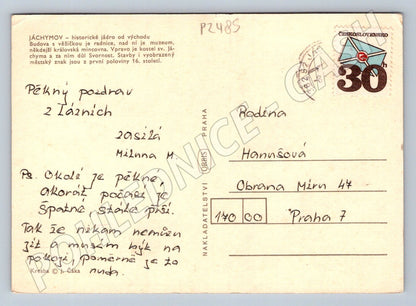 P2485
JÁCHYMOV – historické jádro od východu
Budova s věžičkou je radnice, nad ní je muzeum,
někdejší královská mincovna. Vpravo je kostel sv. Já-
chyma a za ním důl Svornost. Stavby i vyobrazený
městský znak jsou z první poloviny 16. století.
ČESKOSLOVENSKO
30
Pěkný pozdrav
z Lázních
zasílá
Miluna H.
Ps. Okolí je pěkné,
akorát počasí je
špatné stále prší.
Tak že nikam nemůžu
jít a musím být na
pokoji, poměrně je to
nuda.
Kresba © J. Liška
NAKLADATELSTVÍ ORBIS PRAHA
Rodina
Hanušová
Obrana Míru 44
170 00 Praha 7
POHLEDNICE